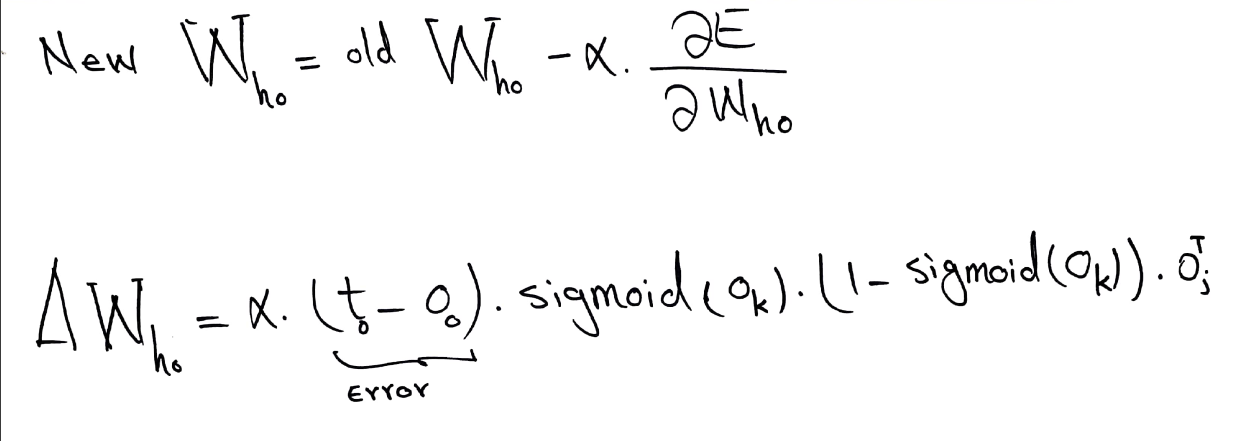 New W_ho = old W_ho - α. ∂E/∂W_ho
ΔW_ho = α. (t_o - o_o). sigmoid(o_k). (1 - sigmoid(o_k)). o_j^T
Error